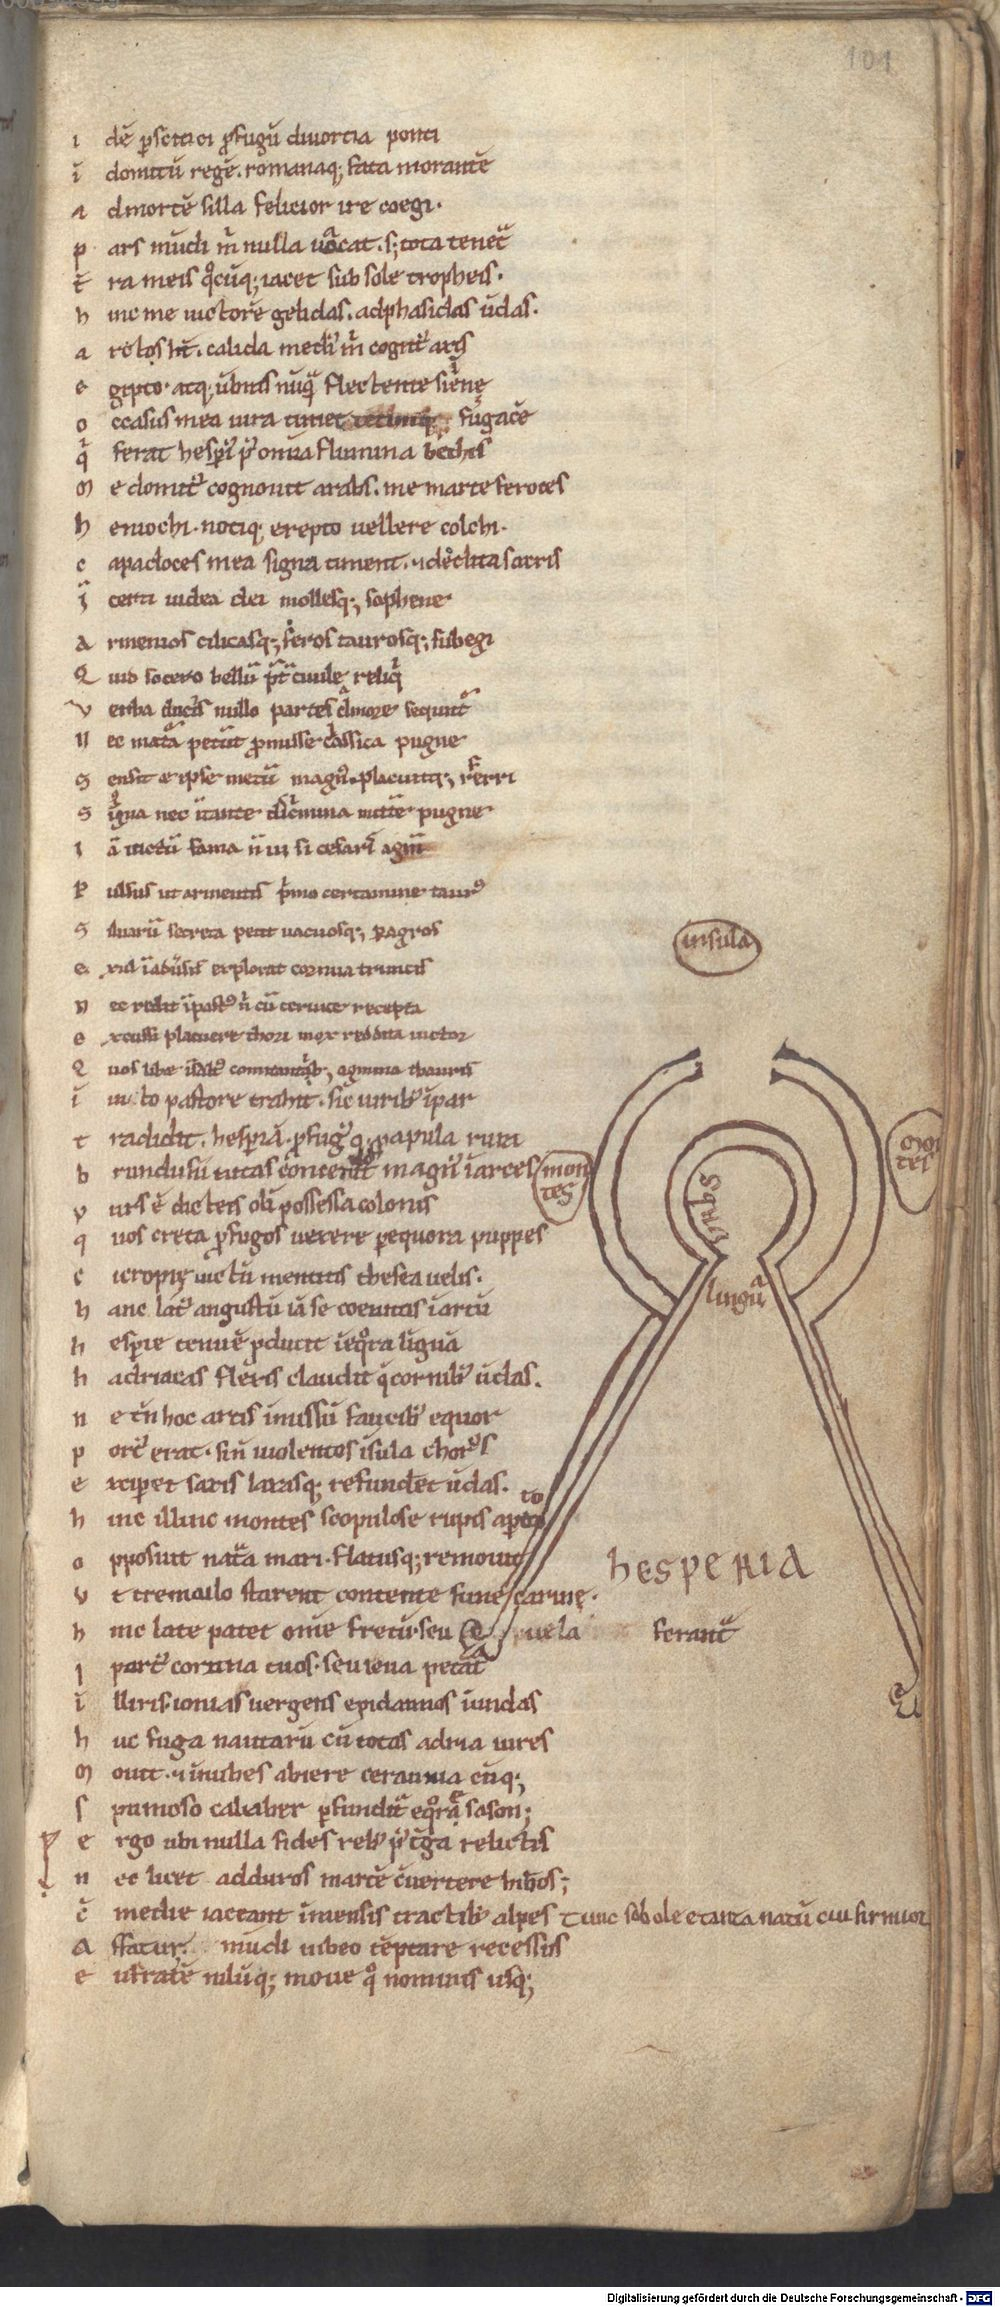 101
i dē ꝑ scitici ꝓfugū diuortia ponti
ī domitū regē. romanaq; fata morantē
a d mortē silla felicior ire coegi.
p ars mūdi m̄ nulla uacat. s; tota tenet̄
t̄ ra meis q̊cūq; iacet sub sole tropheis.
h inc me uictorē gelidas. ad phasidas ūdas.
a rctos ht̄. calida medi' m̄ cognit' axis
e gipto. atq; ūbras nūq̄ flectente siēnę
o ccasus mea iura timet fugacē
q̄ ferat hesperi' p' omīa flumina bethis
m e domit' cognouit arabs. me marte feroces
h eniochi. notiq; erepto uellere colchi.
c apadoces mea signa timent. ⁊ dedita sacris
ī certi iudea dei mollesq; sophene
a rmenios cilicasq; feros taurosq; subegi
Q uid socero bellū p̄t̄ ciuile reliq̄
v erba ducis nullo partes clamore secunt̄
N ec matā petūt ꝓmisse classica pugne
S ensit ⁊ ipse metū magn'. placuitq; referri
S igna nec ī tante discrimina mittē pugne
I ā uictū fama n̄ uisi cesaris agmē
P ulsus ut armentis p̄mo certamine taur'
S iluarū secreta petit uacuosq; ꝑ agros
e xul ī adūsis explorat cornua truncis
n ec redit ī past' n̄ cū ceruice recepta
e xcussi placuere thori mox reddita uictor
Q uos libe īsult' comitantib; agmina tauris
ī uito pastore trahit. sic uirib' īpar
t radidit. hesperiā. ꝓfug' q; ꝑ apula rura
b rundusii tutas concendit magn' ī arces
v urs ē dicteis olī possessa colonis
q uos creta ꝓfugos uexere ꝑ equora puppes
c icropię uictū mentitis thesea uelis.
h anc lat' angustū iā se coeuntis ī artū
h esperie tenuē ꝓducit ī eq̊ra līguā
h adriacas flexis claudit q̄ cornib' ūdas.
n ec tn̄ hoc artis inmissū faucib' equor
p ort' erat. si n̄ uiolentos īsula choros
e xciꝑet saxis laxasq; refunderet ūdas.
h inc illinc montes scopulose rupis aꝑto
o pposuit natā mari. flatusq; remouit
v t tremulo starent contente fune carinę.
h inc late patet omē fretū. seu uela ferant̄
I n part' corcira tuos. seu leua petat̄
ī lliris. ionias uergens epidamnos ī undas
h uc fuga nautarū cū totas adria uires
m ouit. ⁊ ī nubes abiere ceraunia cūq;
s pumoso calaber ꝑfundit̄ eq̊re sason;
e rgo ubi nulla fides reb' p' t̄ga relictis
n ec licet ad duros martē cōuertere hibros;
c̄ medie iaceant īmensis tractib' alpes Tunc sobole e tanta natū cui firmior
a ffatur. mūdi iubeo tēptare recessus
e ufratē nilūq; moue q̊ nominis usq;
insula
montes
montes
urbs
linguā
hesperia